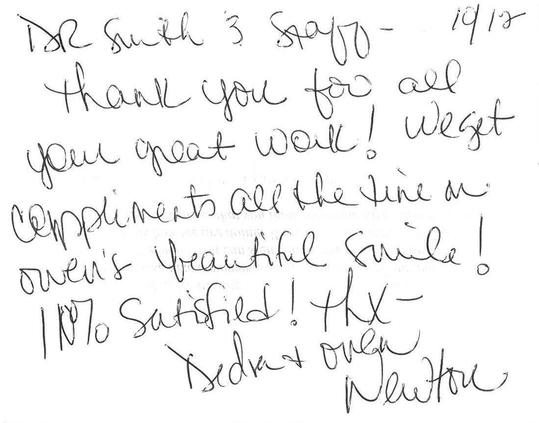 DR Smith & Staff - 10/12
Thank you for all
your great work! We get
compliments all the time on
Owen's beautiful smile!
110% Satisfied! Thx -
Dedra & Owen
Newton